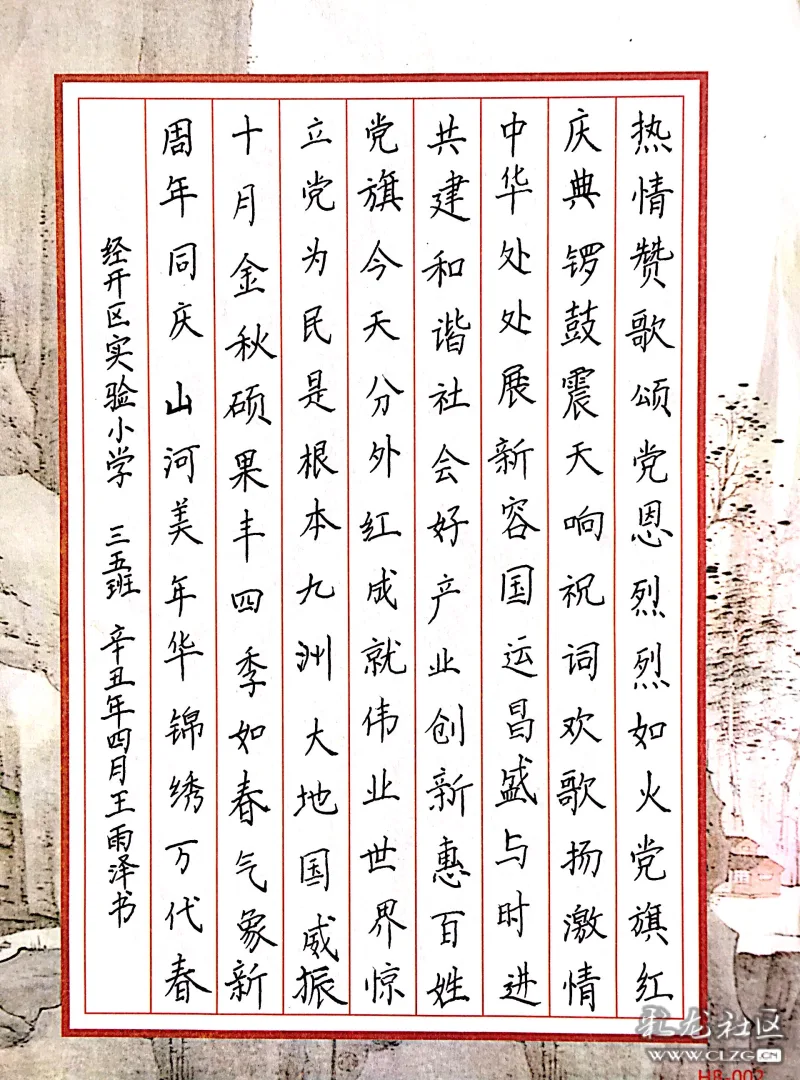 热情赞歌颂党恩烈烈如火党旗红
庆典锣鼓震天响祝词欢歌扬激情
中华处处展新容国运昌盛与时进
共建和谐社会好产业创新惠百姓
党旗今天分外红成就伟业世界惊
立党为民是根本九洲大地国威振
十月金秋硕果丰四季如春气象新
周年同庆山河美年华锦绣万代春
经开区实验小学 三五班 辛丑年四月王雨泽书
社区
WWW.CLZG.CN
HB-002